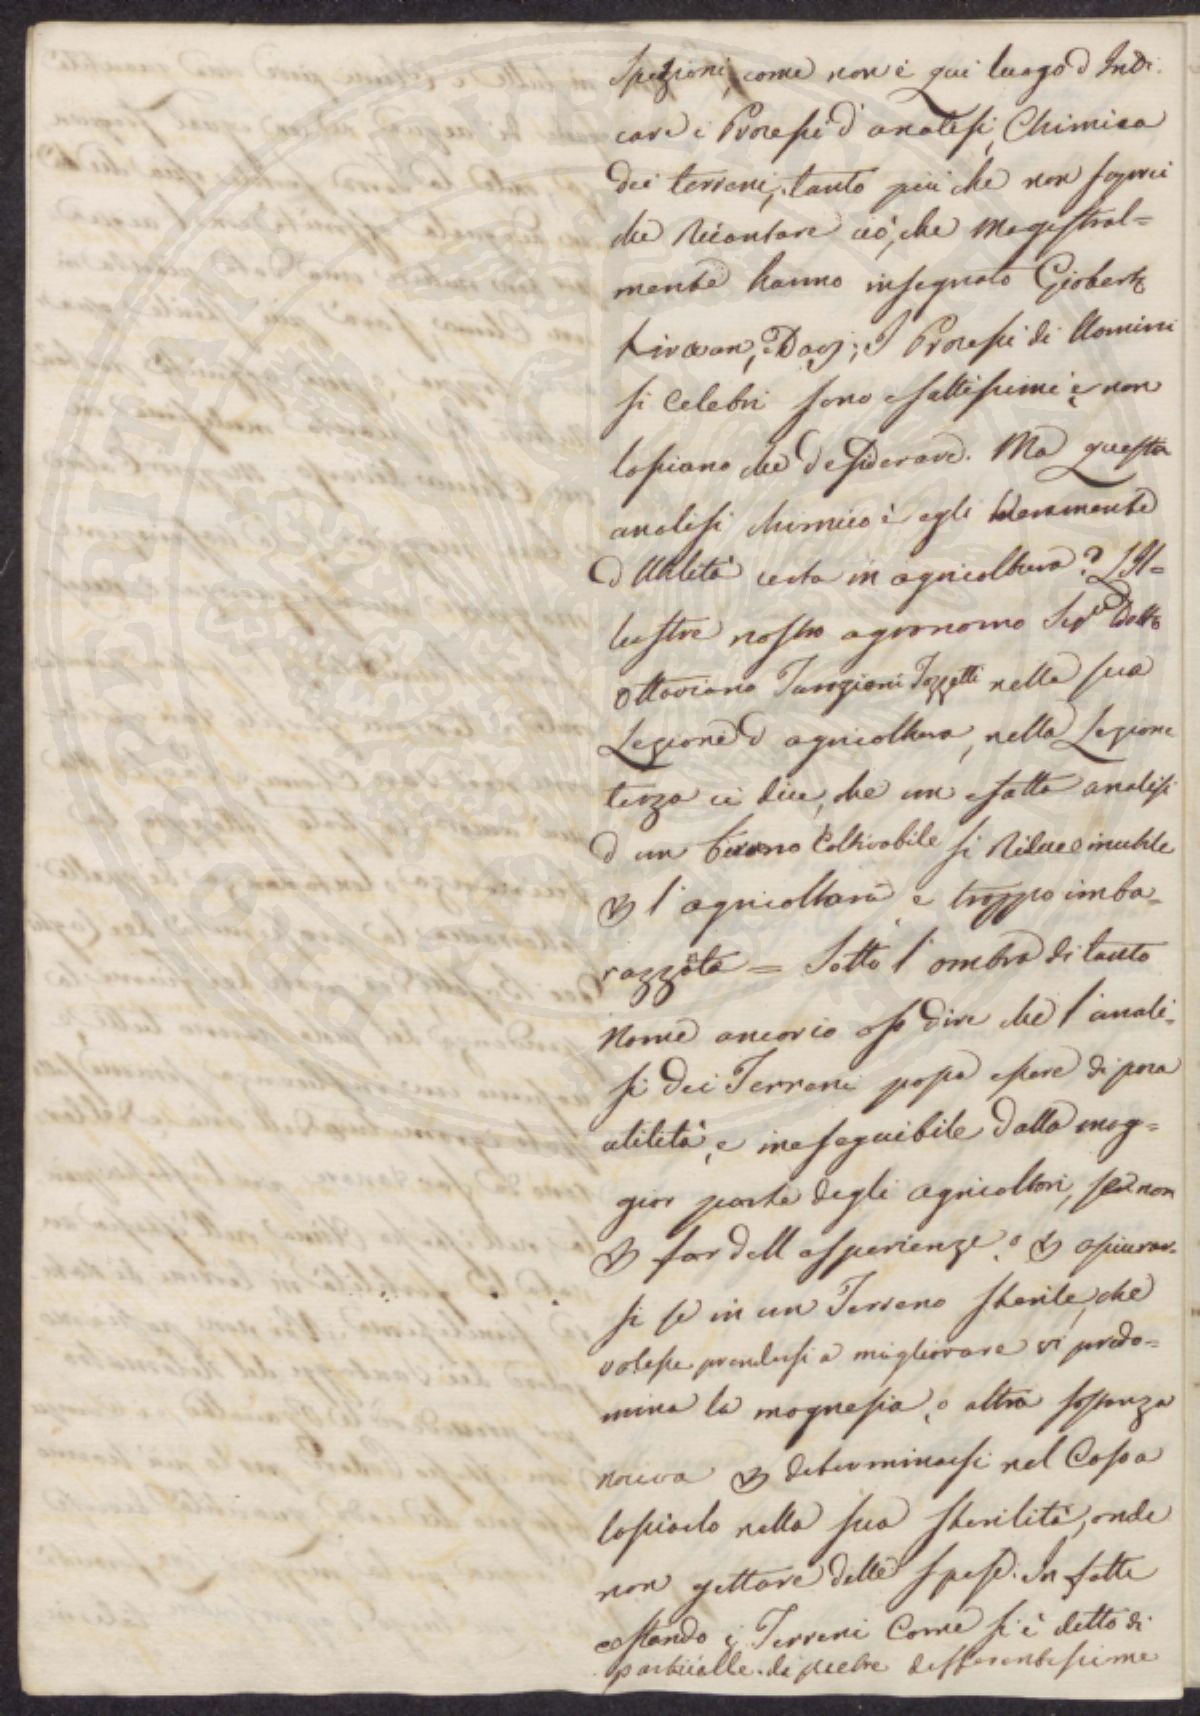 spezioni, come non è qui luogo d'Indi-
care i Processi d'analisi Chimica
dei terreni, tanto più che non saprei
che Ricantare ciò, che magistral-
mente hanno insegnato Giobert,
Kirwan, Davj; I Processi di Uomini
si Celebri sono esattissimi e non
lasciano che desiderare. Ma questa
analisi chimica è egli veramente
d'Utilità certa in agricoltura? L'Il-
lustre nostro agronomo Sigr Dottr
Ottaviano Targioni Tozzetti nella sua
Lezione d'agricoltura, nella Lezione
terza ci dice, che un esatta analisi
d'un terreno Coltivabile si Riduce inutile
l'agricoltura e troppo imba-
razzata = Sotto l'ombra di tanto
Nome ancorio oso dire che l'anali-
si dei Terreni possa essere di poca
utilità, e ineseguibile dalla mag-
gior parte degli agricoltori, se non
far dell esperienze, o assicurar-
si se in un Terreno sterile, che
volesse prendersi a migliorare vi predo-
mina la magnesia, o altra sostanza
nociva determinarsi nel Caso a
lasciarlo nella sua sterilità, onde
non gettare delle spese. In fatti
essendo i Terreni Come si è detto di
particelle di pietre differentissime